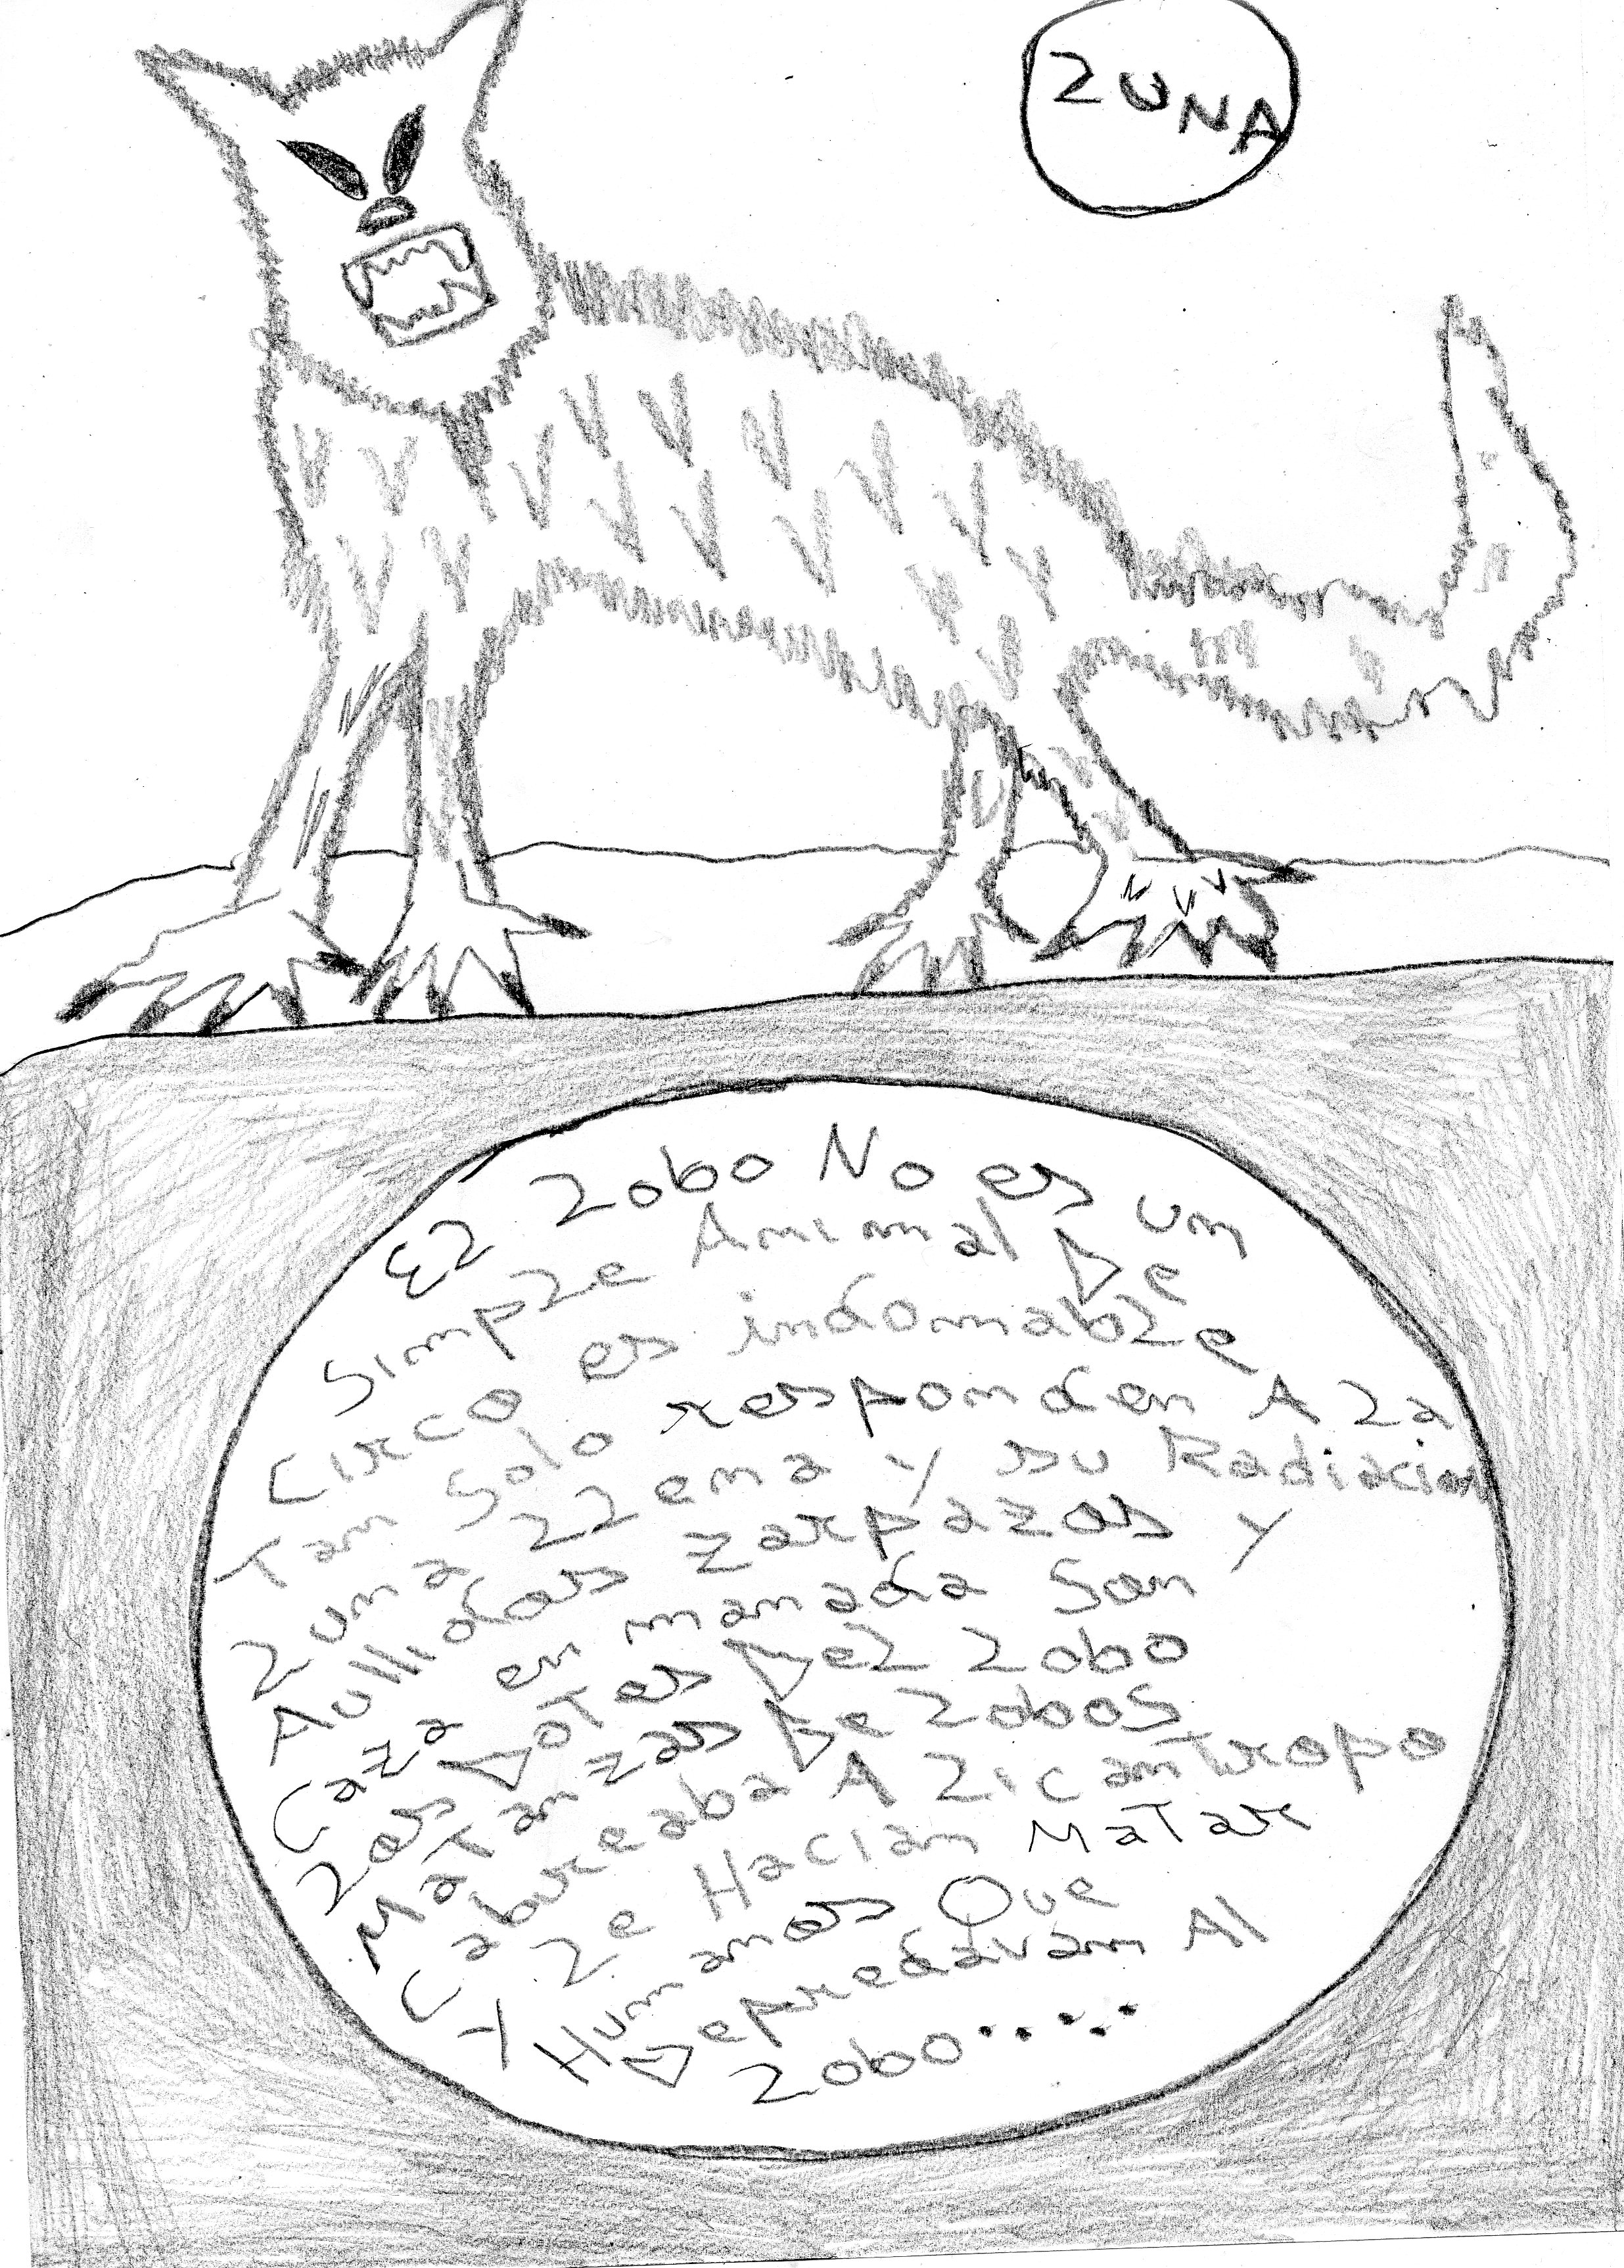 LUNA
EL Lobo No es un
SimpLe Animal De
Circo es indomabLe
Tan Solo responden A La
Luna LLena y su Radiacion
Aullidos zarpazos y
Caza en manada Son
Los Dotes DeL Lobo
Matanzas De Lobos
Cabreaba A Licantropo
Y Le Hacian Matar
Humanos Que
Depredavan Al
Lobo.....